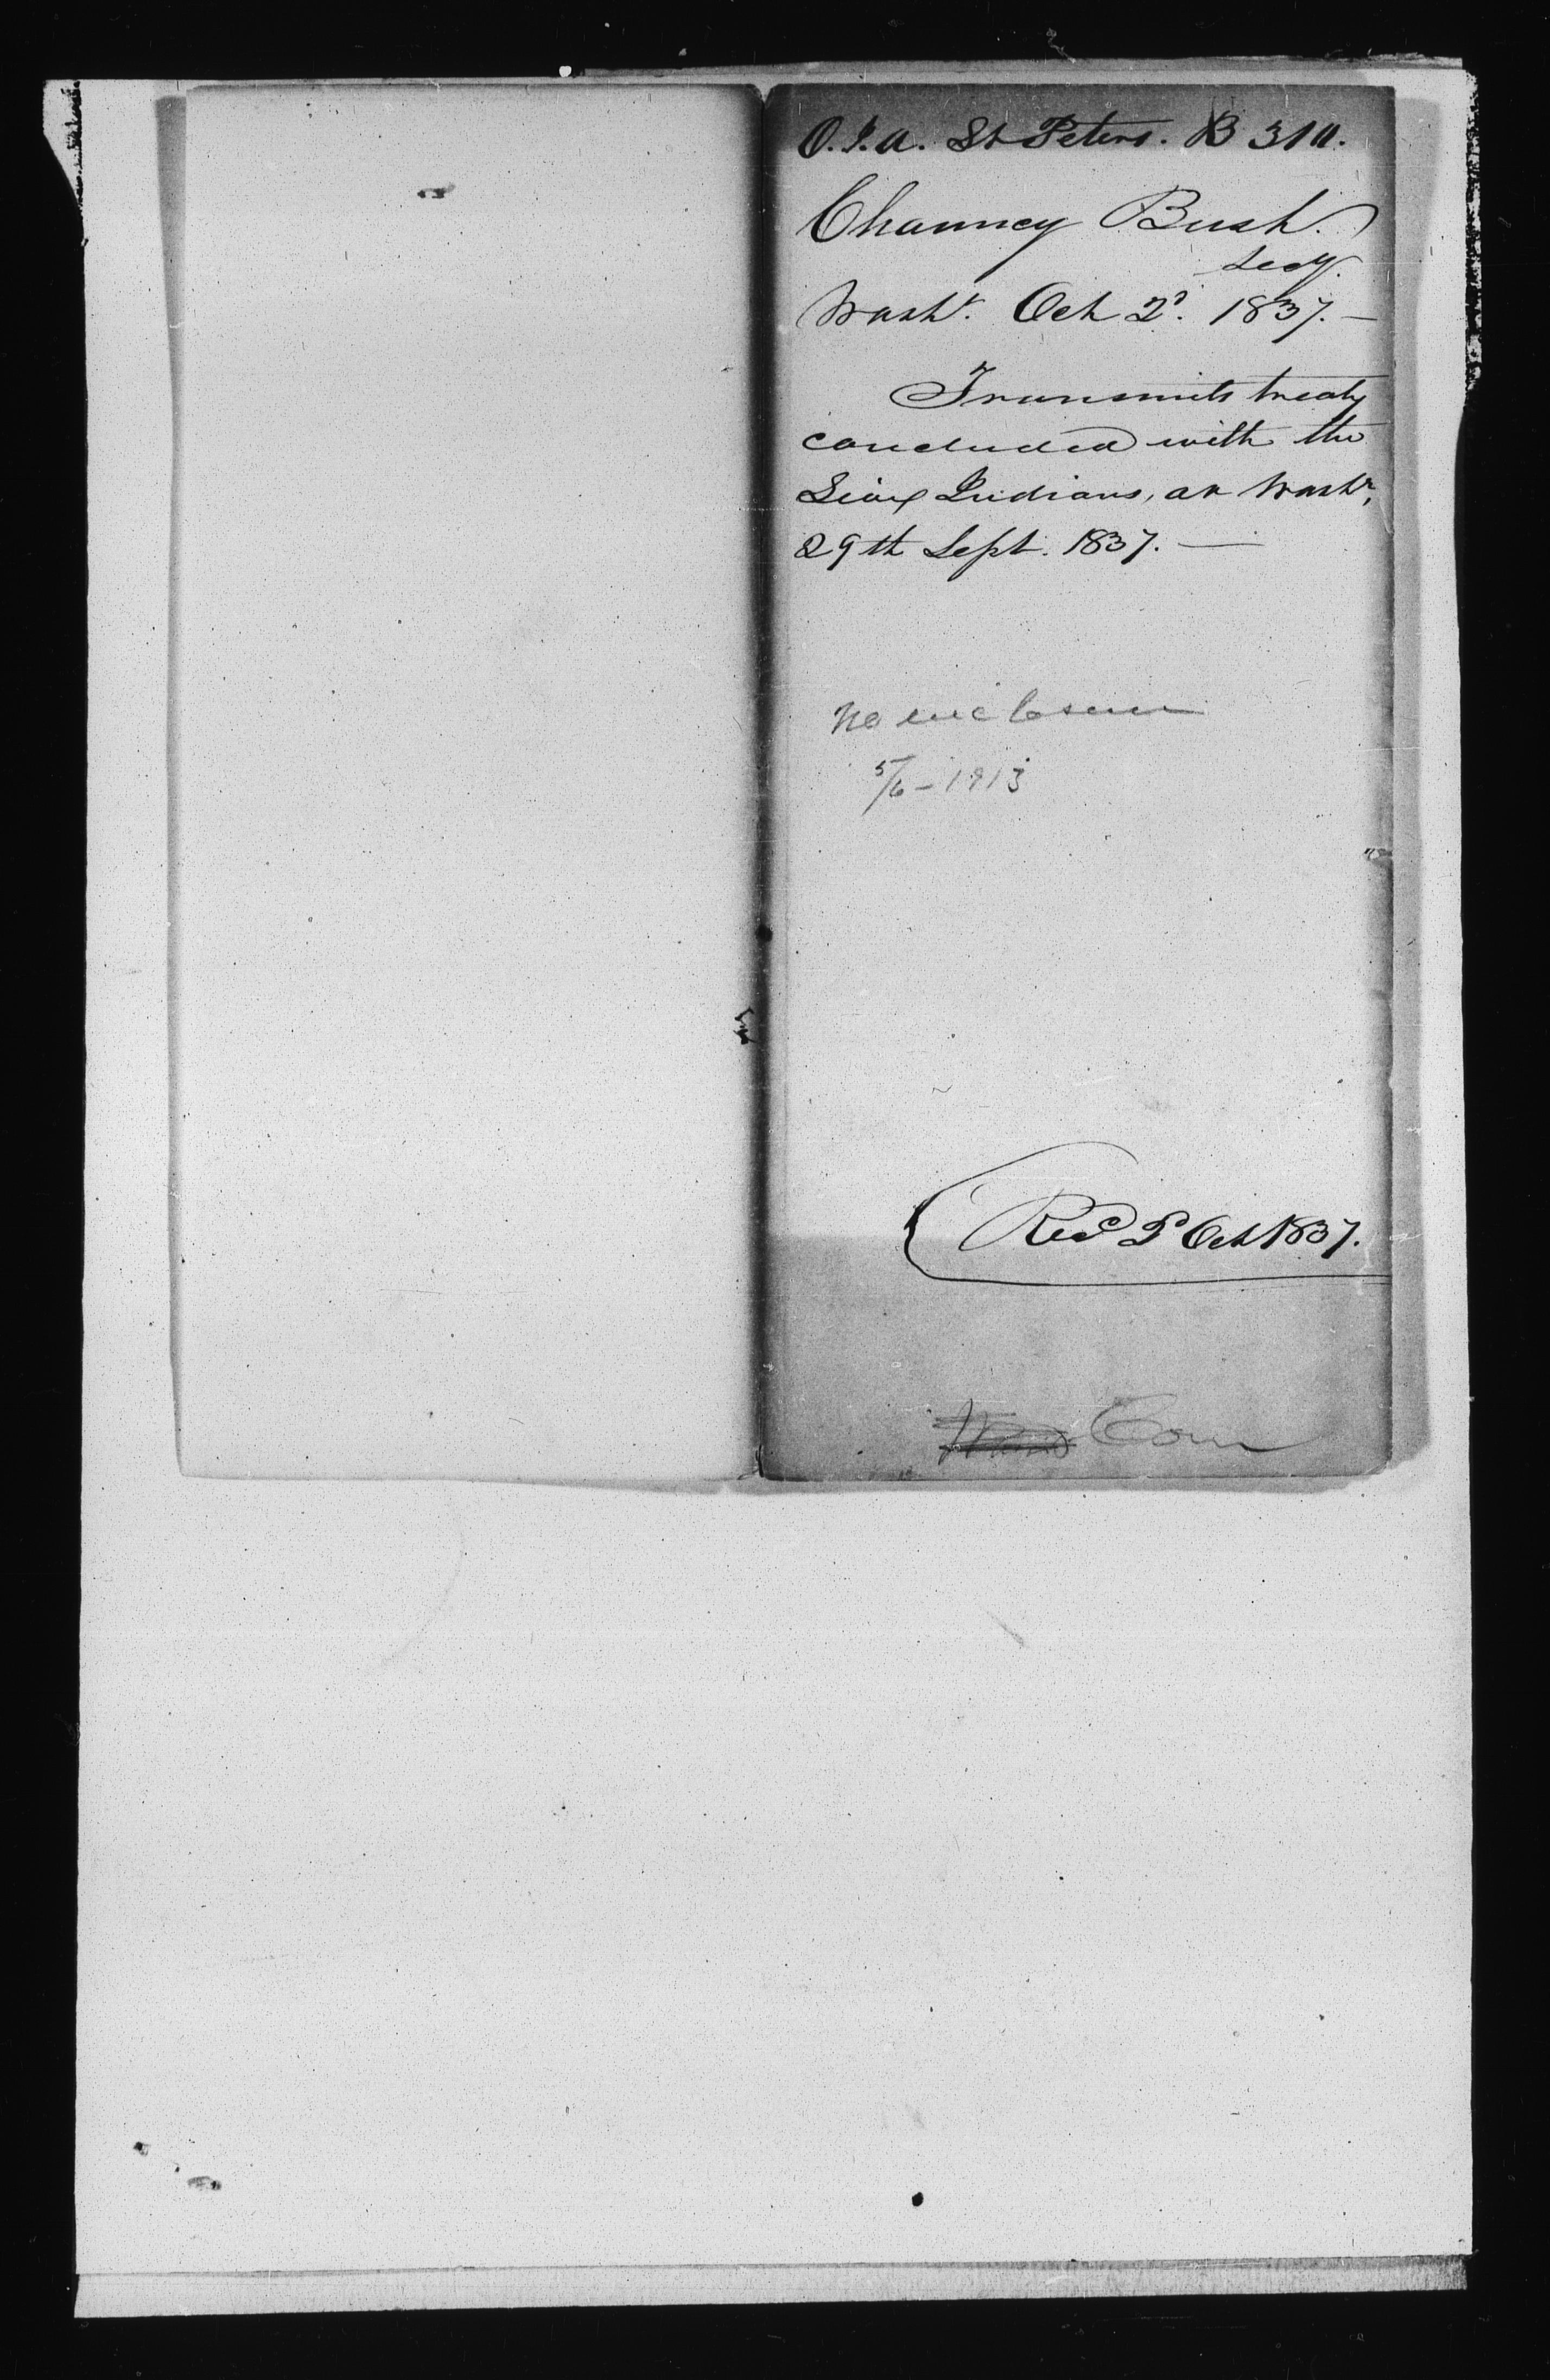 O.I.A. St Peters. B 310.
Chauncey Bush.
Secy.
Washn. Oct 2d. 1837. —
Transmits treaty
concluded with the
Sioux Indians, at Washn,
29th Sept. 1837. —
No enclosure
5/6 - 1913
Recd 2d Oct 1837.
Com